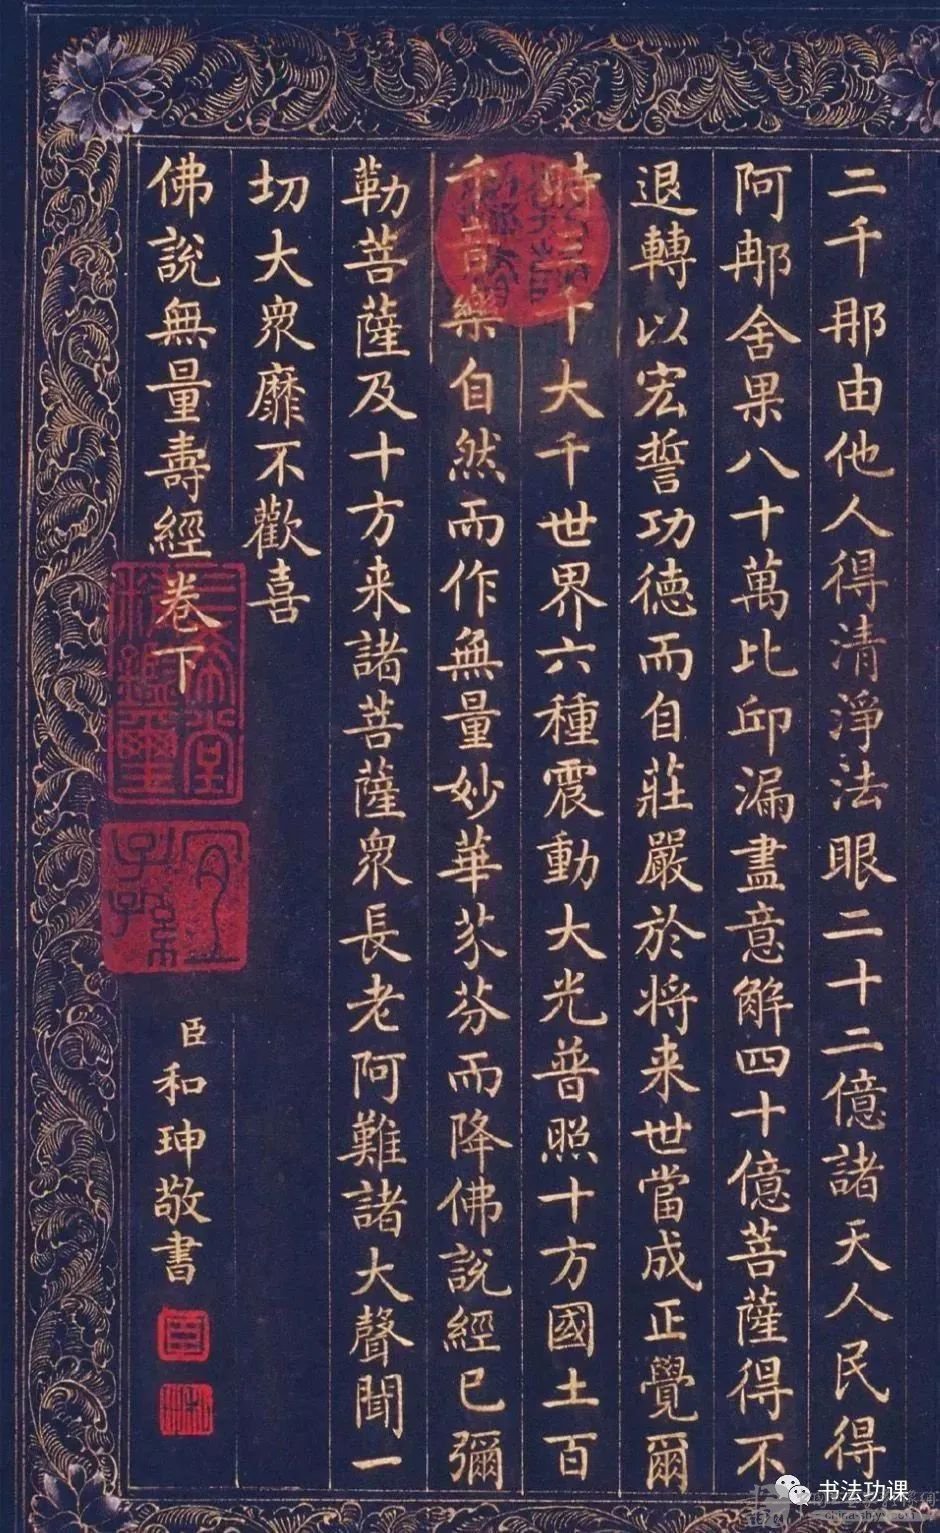 二千那由他人得清淨法眼二十二億諸天人民得
阿那舍果八十萬比邱漏盡意解四十億菩薩得不
退轉以宏誓功德而自莊嚴於將来世當成正覺爾
時三千大千世界六種震動大光普照十方國土百
千音樂自然而作無量妙華芬芬而降佛說經已彌
勒菩薩及十方来諸菩薩眾長老阿難諸大聲聞一
切大眾靡不歡喜
佛說無量壽經卷下
三希堂精鑑璽
宜子孫
臣和珅敬書
臣
和
书法功课